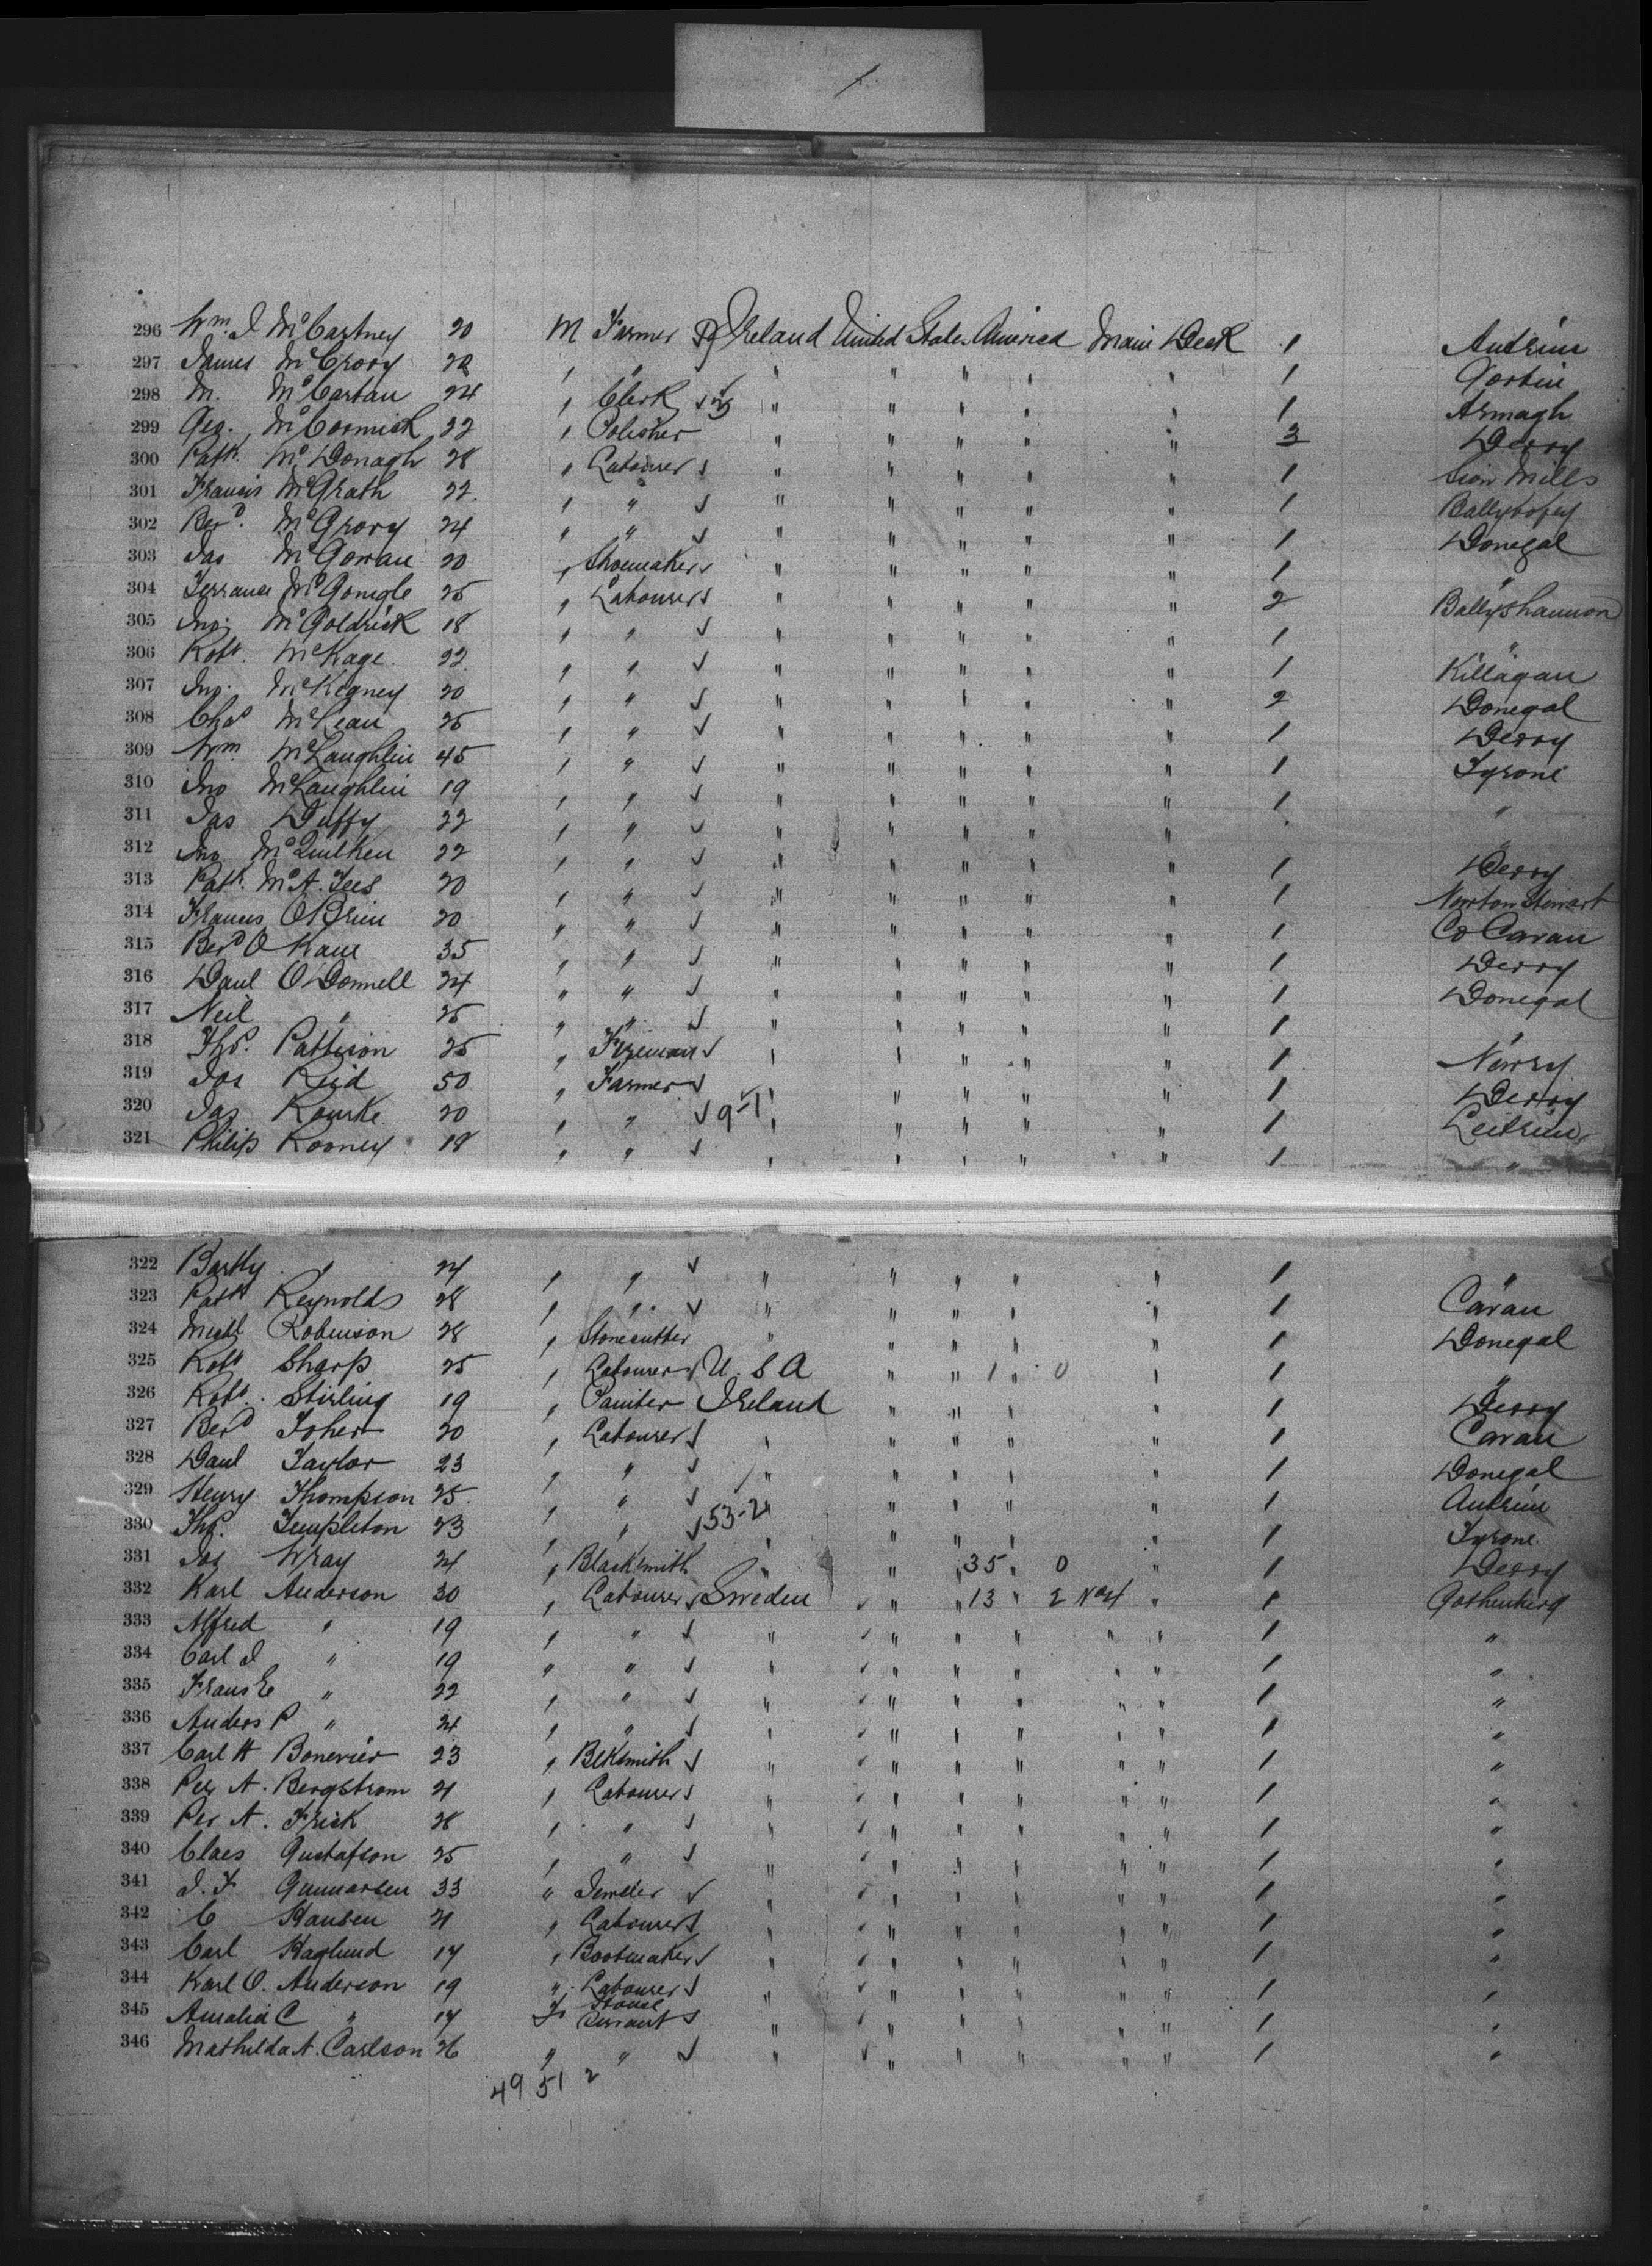 296 Wm. J McCartney 20 M Farmer Ireland United States America Main Deck 1 Antrim
297 James McCrory 22 " " " " " " " 1 Gortin
298 M. McCartan 24 " Clerk " " " " " 1 Armagh
299 Geo. McCormick 22 " Polisher " " " " " 3 Derry
300 Patk. McDonagh 28 " Labourer " " " " " 1 Sion Mills
301 Francis McGrath 22 " " " " " " " 1 Ballybofey
302 Berd. McGrory 24 " " " " " " " 1 Donegal
303 Jas McGowan 20 " Shoemaker " " " " " 1 "
304 Terrance McGonigle 25 " Labourer " " " " " 2 Ballyshannon
305 Jno. McGoldrick 18 " " " " " " " 1 "
306 Robt. McKage 22 " " " " " " " 1 Killagan
307 Jno. McKegney 20 " " " " " " " 2 Donegal
308 Chas McLean 25 " " " " " " " 1 Derry
309 Wm McLaughlin 45 " " " " " " " 1 Tyrone
310 Jno McLaughlin 19 " " " " " " " 1 "
311 Jas Duffy 22 " " " " " " " "
312 Jno McQuilken 22 " " " " " " " 1 Derry
313 Patk. McA. Tees 20 " " " " " " " 1 Newton Stewart
314 Frances OBrien 20 " " " " " " " 1 Co Cavan
315 Berd O Kane 35 " " " " " " " 1 Derry
316 Danl O'Donnell 24 " " " " " " " 1 Donegal
317 Neil " 25 " " " " " " " 1 "
318 Thos. Pattison 25 " Fireman " " " " " 1 Newry
319 Jos Reid 50 " Farmer " " " " " 1 Derry
320 Jas Rourke 20 " " 9-1 " " " " " 1 Leitrim
321 Philip Rooney 18 " " " " " " " 1 "
322 Bartly " 24 " " " " " " " 1 "
323 Patk Reynolds 28 " " " " " " " 1 Cavan
324 Michl Robinson 28 " Stonecutter " " " " " 1 Donegal
325 Robt Sharp 25 " Labourer U.S.A " " 1 " 0 " 1 "
326 Robt. Stirling 19 " Painter Ireland " " " " 1 Derry
327 Berd Toher 20 " Labourer " " " " " 1 Cavan
328 Danl Taylor 23 " " " " " " " 1 Donegal
329 Henry Thompson 25 " " " " " " " 1 Antrim
330 Thos. Templeton 23 " " 53-2 " " " " " 1 Tyrone
331 Jos Wray 24 " Blacksmith " " " 35 " 0 " 1 Derry
332 Karl Anderson 30 " Labourer Sweden " " 13 " 2 " 1 Gothenberg
333 Alfred " 19 " " " " " " " " 1 "
334 Carl J " 19 " " " " " " " " 1 "
335 Frans E " 22 " " " " " " " " 1 "
336 Anders P " 21 " " " " " " " " 1 "
337 Carl H Bonevier 23 " Blksmith " " " " " " 1 "
338 Per A. Bergstrom 21 " Labourer " " " " " " 1 "
339 Per A. Frick 28 " " " " " " " " 1 "
340 Claes Gustafson 25 " " " " " " " " 1 "
341 J. F Gunnarsen 33 " Jeweler " " " " " " 1 "
342 C Hansen 21 " Labourer " " " " " " 1 "
343 Carl Haglund 17 " Bootmaker " " " " " " 1 "
344 Karl O. Anderson 19 " Labourer " " " " " " 1 "
345 Amalia C " 17 F House Servant " " " " " " 1 "
346 Mathilda A. Carlson 26 " " " " " " " " 1 "
49 51 2